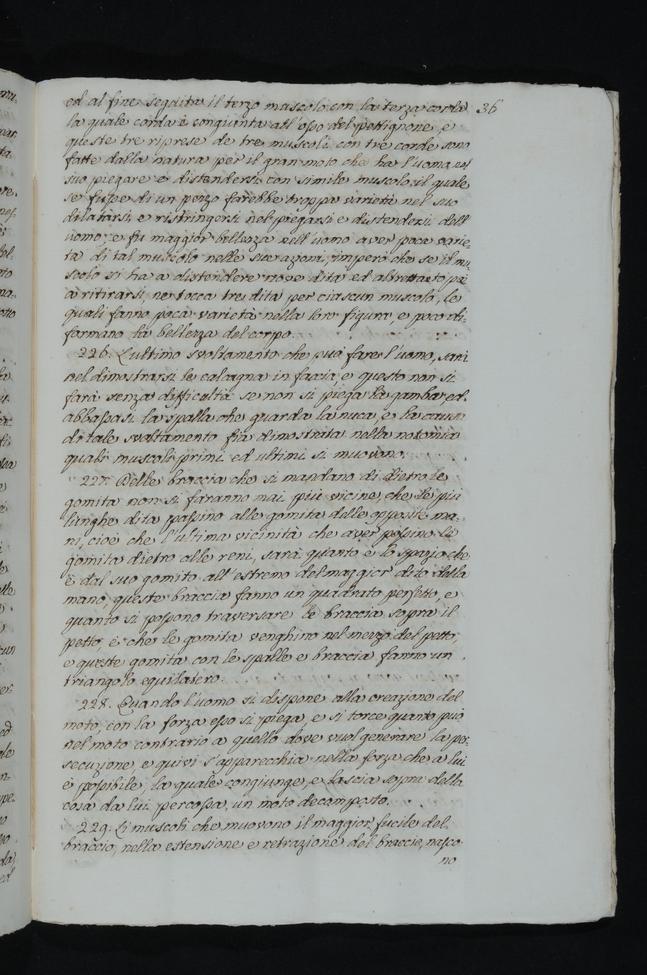 ed al fine seguita il terzo muscolo con la terza corda 36
la quale corda è congiunta all'osso del pettignone, e
queste tre riprese de tre muscoli con tre corde sono
fatte dalla natura per il gran moto che ha l'uomo nel
suo piegare e distendersi con simile muscolo; il quale
se fusse di un pezzo farebbe troppa varietà nel suo
dilatarsi e ristringersi nel piegarsi e distendersi dell'
uomo; e fu maggior bellezza nell'uomo aver poca varie
tà di tal muscolo nelle sue azioni, imperò che se il mu
scolo si ha a distendere nove dita ed altrettanto poi
a ritirarsi, ne tocca tre dita per ciascun muscolo, le
quali fanno poca varietà nella loro figura, e poco di-
formano la bellezza del corpo.
226. L'ultimo svoltamento che può fare l'uomo, sarà
nel dimostrarsi le calcagna in faccia, e questo non si
farà senza difficultà se non si piega la gamba ed
abbassasi la spalla che guarda la nuca, e la causa
di tale svoltamento fia dimostrata nella notomia
quali muscoli primi ed ultimi si muovono.
227. Delle braccia che si mandano di dietro le
gomita non si faranno mai più vicine, che le più
lunghe dita passino alle gomita dalle opposite ma-
ni, cioè che l'ultima vicinità che aver possino le
gomita dietro alle reni, sarà quanto è lo spazio che
è dal suo gomito all'estremo del maggior dito della
mano, queste braccia fanno un quadrato perfetto, e
quanto si possono traversare le braccia sopra il
petto, è che le gomita venghino nel mezzo del petto,
e queste gomita con le spalle e braccia fanno un
triangolo equilatero.
228. Quando l'uomo si dispone alla creazione del
moto, con la forza esso si piega, e si torce quanto può
nel moto contrario a quello dove vuol generare la per-
secuzione, e quivi s'apparecchia nella forza che a lui
è possibile, la quale congiunge, e lascia sopra della
cosa da lui percossa, un moto decomposto.
229. Li muscoli che muovono il maggior fucile del
braccio, nella estensione e retrazione del braccio, nasco
no